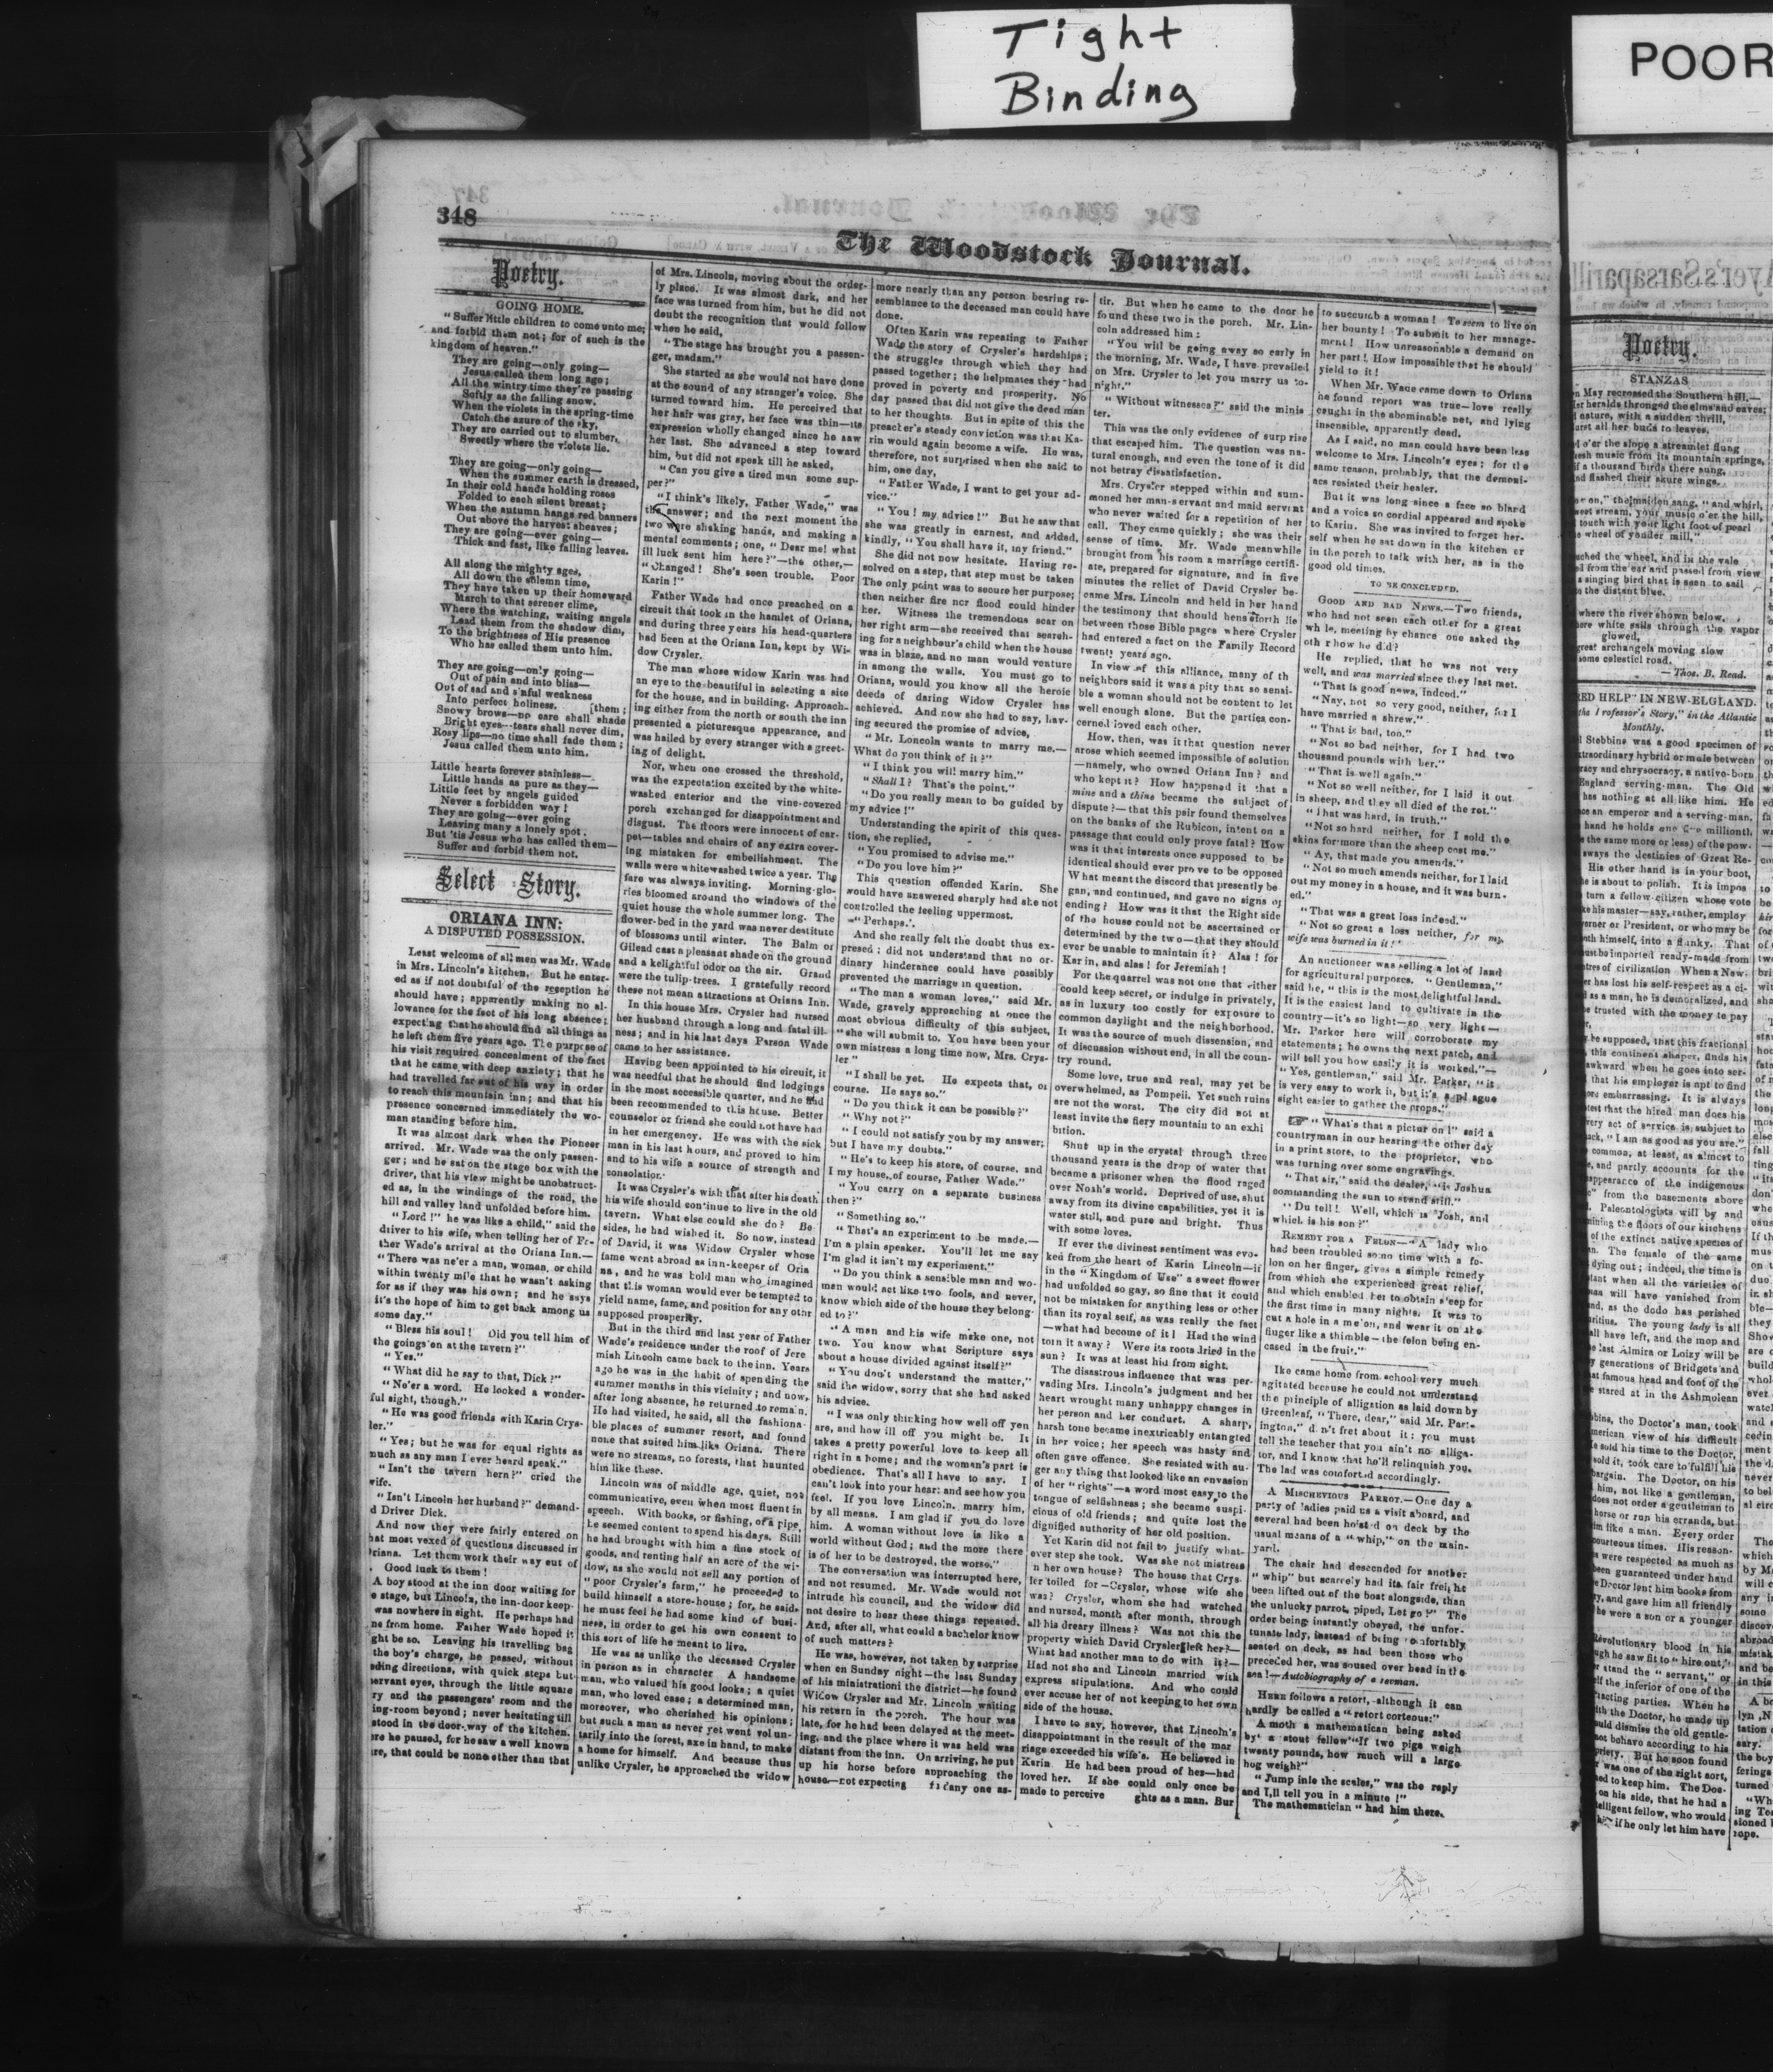 Tight
Binding
POOR
348
The Woodstock Journal.
Poetry.
GOING HOME.
"Suffer little children to come unto me;
and forbid them not; for of such is the
kingdom of heaven."
They are going—only going—
Jesus called them long ago;
All the wintry time they're passing
Softly as the falling snow.
When the violets in the spring-time
Catch the azure of the sky,
They are carried out to slumber,
Sweetly where the violets lie.
They are going—only going—
When the summer earth is dressed,
In their cold hands holding roses
Folded to each silent breast;
When the autumn hangs red banners
Out above the harvest sheaves;
They are going—ever going—
Thick and fast, like falling leaves.
All along the mighty ages,
All down the solemn time,
They have taken up their homeward
March to that serener clime,
Where the watching, waiting angels
Lead them from the shadow dim,
To the brightness of His presence
Who has called them unto him.
They are going—only going—
Out of pain and into bliss—
Out of sad and sinful weakness
Into perfect holiness. [them;
Snowy brows—no care shall shade
Bright eyes—tears shall never dim,
Rosy lips—no time shall fade them;
Jesus called them unto him.
Little hearts forever stainless—
Little hands as pure as they—
Little feet by angels guided
Never a forbidden way!
They are going—ever going
Leaving many a lonely spot.
But 'tis Jesus who has called them—
Suffer and forbid them not.
Select Story.
ORIANA INN:
A DISPUTED POSSESSION.
Least welcome of all men was Mr. Wade
in Mrs. Lincoln's kitchen. But he enter-
ed as if not doubtful of the reception he
should have; apparently making no al-
lowance for the fact of his long absence;
expecting that he should find all things as
he left them five years ago. The purpose of
his visit required concealment of the fact
that he came with deep anxiety; that he
had travelled far out of his way in order
to reach this mountain inn; and that his
presence concerned immediately the wo-
man standing before him.
It was almost dark when the Pioneer
arrived. Mr. Wade was the only passen-
ger; and he sat on the stage box with the
driver, that his view might be unobstruct-
ed as, in the windings of the road, the
hill and valley land unfolded before him.
"Lord!" he was like a child," said the
driver to his wife, when telling her of Fa-
ther Wade's arrival at the Oriana Inn.—
"There was ne'er a man, woman, or child
within twenty mile that he wasn't asking
for as if they was his own; and he says
it's the hope of him to get back among us
some day."
"Bless his soul! Did you tell him of
the goings'on at the tavern?"
"Yes."
"What did he say to that, Dick?"
"Ne'er a word. He looked a wonder-
ful sight, though."
"He was good friends with Karin Crys-
ler."
"Yes; but he was for equal rights as
much as any man I ever heard speak."
"Isn't the tavern hern?" cried the
wife.
"Isn't Lincoln her husband?" demand-
d Driver Dick.
And now they were fairly entered on
hat most vexed of questions discussed in
riana. Let them work their way out of
. Good luck to them!
A boy stood at the inn door waiting for
e stage, but Lincoln, the inn-door keep-
was nowhere in sight. He perhaps had
ne from home. Father Wade hoped it
ght be so. Leaving his travelling bag
the boy's charge, he passed, without
ding directions, with quick steps but
ervant eyes, through the little square
ry and the passengers' room and the
ing-room beyond; never hesitating till
stood in the door-way of the kitchen.
re he paused, for he saw a well known
re, that could be none other than that
of Mrs. Lincoln, moving about the order-
ly place. It was almost dark, and her
face was turned from him, but he did not
doubt the recognition that would follow
when he said,
"The stage has brought you a passen-
ger, madam."
She started as she would not have done
at the sound of any stranger's voice. She
turned toward him. He perceived that
her hair was gray, her face was thin—its
expression wholly changed since he saw
her last. She advanced a step toward
him, but did not speak till he asked,
"Can you give a tired man some sup-
per?"
"I think's likely, Father Wade," was
the answer; and the next moment the
two were shaking hands, and making a
mental comments; one, "Dear me! what
ill luck sent him here?"—the other,—
"Changed! She's seen trouble. Poor
Karin!"
Father Wade had once preached on a
circuit that took in the hamlet of Oriana,
and during three years his head-quarters
had been at the Oriana Inn, kept by Wi-
dow Crysler.
The man whose widow Karin was had
an eye to the beautiful in selecting a site
for the house, and in building. Approach-
ing either from the north or south the inn
presented a picturesque appearance, and
was hailed by every stranger with a greet-
ing of delight.
Nor, when one crossed the threshold,
was the expectation excited by the white-
washed enterior and the vine-covered
porch exchanged for disappointment and
disgust. The floors were innocent of car-
pet—tables and chairs of any extra cover-
ing mistaken for embellishment. The
walls were whitewashed twice a year. The
fare was always inviting. Morning-glo-
ries bloomed around the windows of the
quiet house the whole summer long. The
flower-bed in the yard was never destitute
of blossoms until winter. The Balm of
Gilead cast a pleasant shade on the ground
and a kelightful odor on the air. Grand
were the tulip-trees. I gratefully record
these not mean attractions at Oriana Inn.
In this house Mrs. Crysler had nursed
her husband through a long and fatal ill-
ness; and in his last days Parson Wade
came to her assistance.
Having been appointed to his circuit, it
was needful that he should find lodgings
in the most accessible quarter, and he had
been recommended to this house. Better
counselor or friend she could not have had
in her emergency. He was with the sick
man in his last hours, and proved to him
and to his wife a source of strength and
consolation.
It was Crysler's wish that after his death
his wife should continue to live in the old
tavern. What else could she do? Be-
sides, he had wished it. So now, instead
of David, it was Widow Crysler whose
fame went abroad as inn-keeper of Oria
na, and he was bold man who imagined
that this woman would ever be tempted to
yield name, fame, and position for any othr
supposed prosperity.
But in the third and last year of Father
Wade's residence under the roof of Jere
miah Lincoln came back to the inn. Years
ago he was in the habit of spending the
summer months in this vicinity; and now,
after long absence, he returned to remain.
He had visited, he said, all the fashiona-
ble places of summer resort, and found
none that suited him like Oriana. There
were no streams, no forests, that haunted
him like these.
Lincoln was of middle age, quiet, not
communicative, even when most fluent in
speech. With books, or fishing, or a pipe,
he seemed content to spend his days. Still
he had brought with him a fine stock of
goods, and renting half an acre of the wi-
dow, as she would not sell any portion of
"poor Crysler's farm," he proceeded to
build himself a store-house; for, he said,
he must feel he had some kind of busi-
ness, in order to get his own consent to
this sort of life he meant to live.
He was as unlike the deceased Crysler
in person as in character A handsome
man, who valued his good looks; a quiet
man, who loved ease; a determined man,
moreover, who cherished his opinions;
but such a man as never yet went vol un-
tarily into the forest, axe in hand, to make
a home for himself. And because thus
unlike Crysler, he approached the widow
more nearly than any person bearing re-
semblance to the deceased man could have
done.
Often Karin was repeating to Father
Wade the story of Crysler's hardships;
the struggles through which they had
passed together; the helpmates they had
proved in poverty and prosperity. No
day passed that did not give the dead man
to her thoughts. But in spite of this the
preacher's steady conviction was that Ka-
rin would again become a wife. He was,
therefore, not surprised when she said to
him, one day,
"Father Wade, I want to get your ad-
vice."
"You! my advice!" But he saw that
she was greatly in earnest, and added,
kindly, "You shall have it, my friend."
She did not now hesitate. Having re-
solved on a step, that step must be taken
The only point was to secure her purpose;
then neither fire nor flood could hinder
her. Witness the tremendous scar on
her right arm—she received that search-
ing for a neighbour's child when the house
was in blaze, and no man would venture
in among the walls. You must go to
Oriana, would you know all the heroic
deeds of daring Widow Crysler has
achieved. And now she had to say, hav-
ing secured the promise of advice,
"Mr. Loncoln wants to marry me.—
What do you think of it?"
"I think you will marry him."
"Shall I? That's the point."
"Do you really mean to be guided by
my advice!"
Understanding the spirit of this ques-
tion, she replied,
"You promised to advise me."
"Do you love him?"
This question offended Karin. She
would have answered sharply had she not
controlled the feeling uppermost.
"Perhaps."
And she really felt the doubt thus ex-
pressed; did not understand that no or-
dinary hinderance could have possibly
prevented the marriage in question.
"The man a woman loves," said Mr.
Wade, gravely approaching at once the
most obvious difficulty of this subject,
"she will submit to. You have been your
own mistress a long time now, Mrs. Crys-
ler."
"I shall be yet. He expects that, of
course. He says so."
"Do you think it can be possible?"
"Why not?"
"I could not satisfy you by my answer;
but I have my doubts."
"He's to keep his store, of course, and
I my house, of course, Father Wade."
"You carry on a separate business
then?"
"Something so."
"That's an experiment to be made.—
I'm a plain speaker. You'll let me say
I'm glad it isn't my experiment."
"Do you think a sensible man and wo-
man would act like two fools, and never,
know which side of the house they belong-
ed to?"
"A man and his wife make one, not
two. You know what Scripture says
about a house divided against itself?"
"You don't understand the matter,"
said the widow, sorry that she had asked
his advice.
"I was only thinking how well off you
are, and how ill off you might be. It
takes a pretty powerful love to keep all
right in a home; and the woman's part is
obedience. That's all I have to say. I
can't look into your hear: and see how you
feel. If you love Lincoln, marry him,
by all means. I am glad if you do love
him. A woman without love is like a
world without God; and the more there
is of her to be destroyed, the worse."
The conversation was interrupted here,
and not resumed. Mr. Wade would not
intrude his council, and the widow did
not desire to hear these things repeated.
And, after all, what could a bachelor know
of such matters?
He was, however, not taken by surprise
when on Sunday night—the last Sunday
of his ministrationi the district—he found
Widow Crysler and Mr. Lincoln waiting
his return in the porch. The hour was
late, for he had been delayed at the meet-
ing, and the place where it was held was
distant from the inn. On arriving, he put
up his horse before approaching the
house—not expecting any one as-
tir. But when he came to the door he
found these two in the porch. Mr. Lin-
coln addressed him:
"You will be going away so early in
the morning, Mr. Wade, I have prevailed
on Mrs. Crysler to let you marry us to-
night."
"Without witnesses?" said the minis
ter.
This was the only evidence of surprise
that escaped him. The question was na-
tural enough, and even the tone of it did
not betray dissatisfaction.
Mrs. Crysler stepped within and sum-
moned her man-servant and maid servant
who never waited for a repetition of her
call. They came quickly; she was their
sense of time. Mr. Wade meanwhile
brought from his room a marriage certifi-
ate, prepared for signature, and in five
minutes the relict of David Crysler be-
came Mrs. Lincoln and held in her hand
the testimony that should henseforth lie
between those Bible pages where Crysler
had entered a fact on the Family Record
twenty years ago.
In view of this alliance, many of th
neighbors said it was a pity that so sensi-
ble a woman should not be content to let
well enough alone. But the parties con-
cerned loved each other.
How, then, was it that question never
arose which seemed impossible of solution
—namely, who owned Oriana Inn? and
who kept it? How happened it that a
mine and a thine became the subject of
dispute?—that this pair found themselves
on the banks of the Rubicon, intent on a
passage that could only prove fatal? How
was it that interests once supposed to be
identical should ever prove to be opposed
What meant the discord that presently be-
gan, and continued, and gave no signs of
ending? How was it that the Right side
of the house could not be ascertained or
determined by the two—that they should
ever be unable to maintain it? Alas! for
Karin, and alas! for Jeremiah!
For the quarrel was not one that either
could keep secret, or indulge in privately,
as in luxury too costly for exposure to
common daylight and the neighborhood.
It was the source of much dissension, and
of discussion without end, in all the coun-
try round.
Some love, true and real, may yet be
overwhelmed, as Pompeii. Yet such ruins
are not the worst. The city did not at
least invite the fiery mountain to an exhi
bition.
Shut up in the crystal through three
thousand years is the drop of water that
became a prisoner when the flood raged
over Noah's world. Deprived of use, shut
away from its divine capabilities, yet it is
water still, and pure and bright. Thus
with some loves.
If ever the divinest sentiment was evo-
ked from the heart of Karin Lincoln—if
in the "Kingdom of Use" a sweet flower
had unfolded so gay, so fine that it could
not be mistaken for anything less or other
than its royal self, as was really the fact
—what had become of it! Had the wind
torn it away? Were its roots dried in the
sun? It was at least hid from sight.
The disastrous influence that was per-
vading Mrs. Lincoln's judgment and her
heart wrought many unhappy changes in
her person and her conduct. A sharp,
harsh tone became inextricably entangled
in her voice; her speech was hasty and
often gave offence. She resisted with au-
ger any thing that looked like an envasion
of her "rights"—a word most easy to the
tongue of selfishness; she became suspi-
cious of old friends; and quite lost the
dignified authority of her old position.
Yet Karin did not fail to justify what-
ever step she took. Was she not mistress
n her own house? The house that Crys
ler toiled for—Crysler, whose wife she
was? Crysler, whom she had watched
and nursed, month after month, through
all his dreary illness? Was not this the
property which David Crysler left her?—
What had another man to do with it?—
Had not she and Lincoln married with
express stipulations. And who could
ever accuse her of not keeping to her own
side of the house.
I have to say, however, that Lincoln's
disappointment in the result of the mar
riage exceeded his wife's. He believed in
Karin. He had been proud of her—had
loved her. If she could only once be
made to perceive ghts as a man. Bur
to succumb a woman! To seem to live on
her bounty! To submit to her manage-
ment! How unreasonable a demand on
her part! How impossible that he should
yield to it!
When Mr. Wade came down to Oriana
he found report was true—love really
caught in the abominable net, and lying
insensible, apparently dead.
As I said, no man could have been less
welcome to Mrs. Lincoln's eyes; for the
same reason, probably, that the demoni-
acs resisted their healer.
But it was long since a face so bland
and a voice so cordial appeared and spoke
to Karin. She was invited to forget her-
self when he sat down in the kitchen or
in the porch to talk with her, as in the
good old times.
TO BE CONCLUDED.
GOOD AND BAD NEWS.—Two friends,
who had not seen each other for a great
wh le, meeting by chance one asked the
oth r how he did?
He replied, that he was not very
well, and was married since they last met.
"That is good news, indeed."
"Nay, not so very good, neither, for I
have married a shrew."
"That is bad, too."
"Not so bad neither, for I had two
thousand pounds with her."
"That is well again."
"Not so well neither, for I laid it out
in sheep, and they all died of the rot."
"That was hard, in truth."
"Not so hard neither, for I sold the
skins for more than the sheep cost me."
"Ay, that made you amends."
"Not so much amends neither, for I laid
out my money in a house, and it was burn-
ed."
"That was a great loss indeed."
"Not so great a loss neither, for my
wife was burned in it!"
An auctioneer was selling a lot of land
for agricultural purpores. "Gentlemen,"
said he, "this is the most delightful land.
It is the easiest land to cultivate in the
country—it's so light—so very light—
Mr. Parkor here will corroborate my
statements; he owns the next patch, and
will tell you how easily it is worked."—
"Yes, gentleman," said Mr. Parker, "it
is very easy to work it, but it's a pl ague
sight easier to gather the crops."
"What's that a pictur on!" said a
countryman in our hearing the other day
in a print store, to the proprietor, who
was turning over some engravings.
"That sir," said the dealer, "is Joshua
commanding the sun to stand still."
"Du tell! Well, which is Josh, and
which is his son?"
REMEDY FOR A FELON—"A lady who
had been troubled some time with a fe-
lon on her finger, gives a simple remedy
from which she experienced great relief,
and which enabled her to obtain sleep for
the first time in many nights. It was to
cut a hole in a me'on, and wear it on the
finger like a thimble—the felon being en-
cased in the fruit."
Ike came home from school very much
agitated because he could not understand
the principle of alligation as laid down by
Greenleaf, "There, dear," said Mr. Part-
ington," d n't fret about it: you must
tell the teacher that you ain't no alliga-
tor, and I know that he'll relinquish you.
The lad was comforted accordingly.
A MISCHEVIOUS PARROT.—One day a
party of ladies paid us a visit aboard, and
several had been hoisted on deck by the
usual means of a "whip," on the main-
yard.
The chair had descended for another
"whip" but scarcely had its fair freight
been lifted out of the boat alongside, than
the unlucky parrot, piped, Let go!" The
order being instantly obeyed, the unfor-
tunate lady, instead of being comfortably
seated on deck, as had been those who
preceded her, was soused over head in the
sea!—Autobiography of a seeman.
HERE follows a retort, although it can
hardly be called a "retort corteous:"
A moth a mathematican being asked
by a stout fellow "If two pigs weigh
twenty pounds, how much will a large
hog weigh?"
"Jump inle the scales," was the reply
and I,ll tell you in a minute!"
The mathematician "had him there.
Poetry.
STANZAS
n May recrossed the Southern hill,—
Her heralds thronged the elms and eaves;
l nature, with a sudden thrill,
urst all her buds to leaves.
d o'er the slope a streamlet flung
resh music from its mountain springs,
if a thousand birds there sung,
nd flashed their skure wings.
on," the maiden sang, "and whirl,
weet stream, your music o'er the hill,
touch with your light foot of pearl
e wheel of yonder mill."
uched the wheel, and in the vale
ed from the ear and passed from view
a singing bird that is seen to sail
o the distant blue.
where the river shown below,
here white sails through the vapor
glowed,
great archangels moving slow
some celestiel road.
—Thos. B. Read.
RED HELP" IN NEW-ELGLAND.
the Professor's Story," in the Atlantic
Monthly.
l Stebbins was a good specimen of
xtraordinary hybrid or mule between
racy and chrysocracy, a native-born
England serving-man. The Old
has nothing at all like him. He
ce an emperor and a serving-man.
hand he holds one five millionth,
e the same more or less) of the pow-
sways the destinies of Great Re-
His other hand is in your boot,
e is about to polish. It is impos
turn a fellow-citizen whose vote
ke his master—say, rather, employ
verner or President, or who may be
oth himself, into a flunky. That
ust be imported ready-made from
ntres of civilization When a New-
er has lost his self-respect as a ci-
d as a man, he is demoralized, and
be trusted with the money to pay
be supposed, that this fractional
this continent shaper, finds his
awkward when he goes into ser-
that his employer is apt to find
ore embarrassing. It is always
test that the hired man does his
very act of service is subject to
ack, "I am as good as you are."
common, at least, as almost to
s, and partly accounts for the
appearance of the indigenous
" from the basements above
. Paleontologists will by and
mining the floors of our kitchens
of the extinct native species of
n. The female of the same
dying out; indeed, the time is
tant when all the varieties of
will have vanished from
nd, as the dodo has perished
uritius. The young lady is all
all have left, and the mop and
e last Almira or Loizy will be
y generations of Bridgets and
at famous head and foot of the
e stared at in the Ashmolean
bbins, the Doctor's man, took
merican view of his difficult
e sold his time to the Doctor,
sold it, took care to fulfill his
bargain. The Doctor, on his
him, not like a gentleman,
does not order a gentleman to
horse or run his errands, but
im like a man. Every order
courteous times. His reason-
s were respected as much as
been guaranteed under hand
e Doctor lent him books from
ry, and gave him all friendly
he were a son or a younger
Revolutionary blood in his
ugh he saw fit to "hire out,"
r stand the "servant," or
elf the inferior of one of the
racting parties. When he
ith the Doctor, he made up
uld dismiss the old gentle-
not behave according to his
priety. But he soon found
r was one of the right sort,
ed to keep him. The Doc-
on his side, that he had a
elligent fellow, who would
if he only let him have